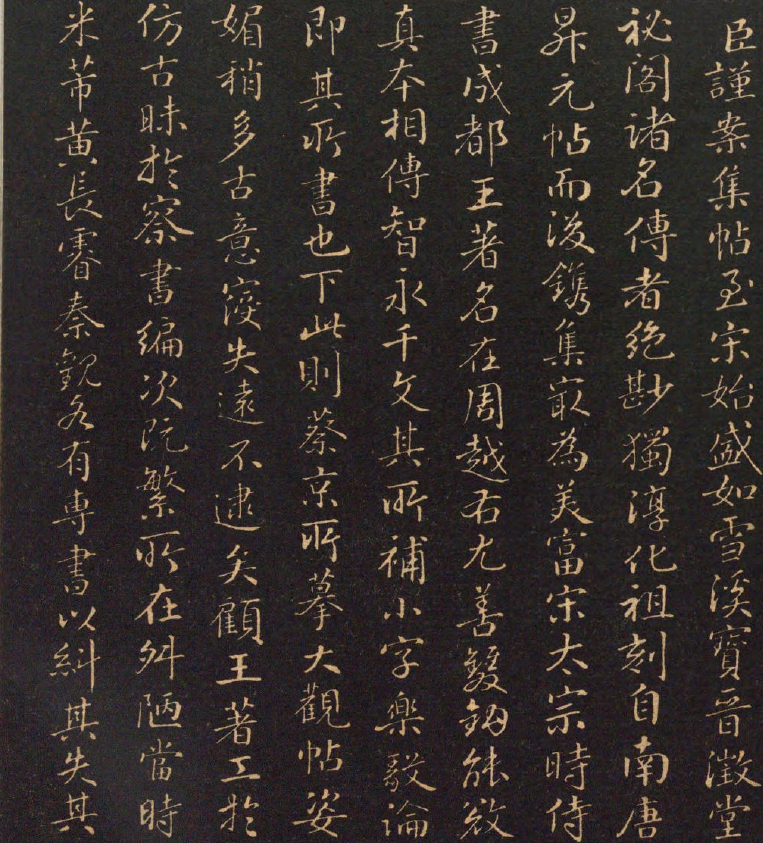 臣謹案集帖至宋始盛如雪溪寶晉澂堂
祕閣諸名傳者絶尠獨淳化祖刻自南唐
昇元帖而後鐫集㝡為美富宋太宗時侍
書成都王著名在周越右尤善雙鉤能敓
真本相傳智永千文其所補小字樂毅論
即其所書也下此則蔡京所摹大觀帖姿
媚稍多古意寖失遠不逮矣顧王著工於
仿古昧於察書編次既繁所在舛陋當時
米芾黃長睿秦觀各有專書以糾其失其